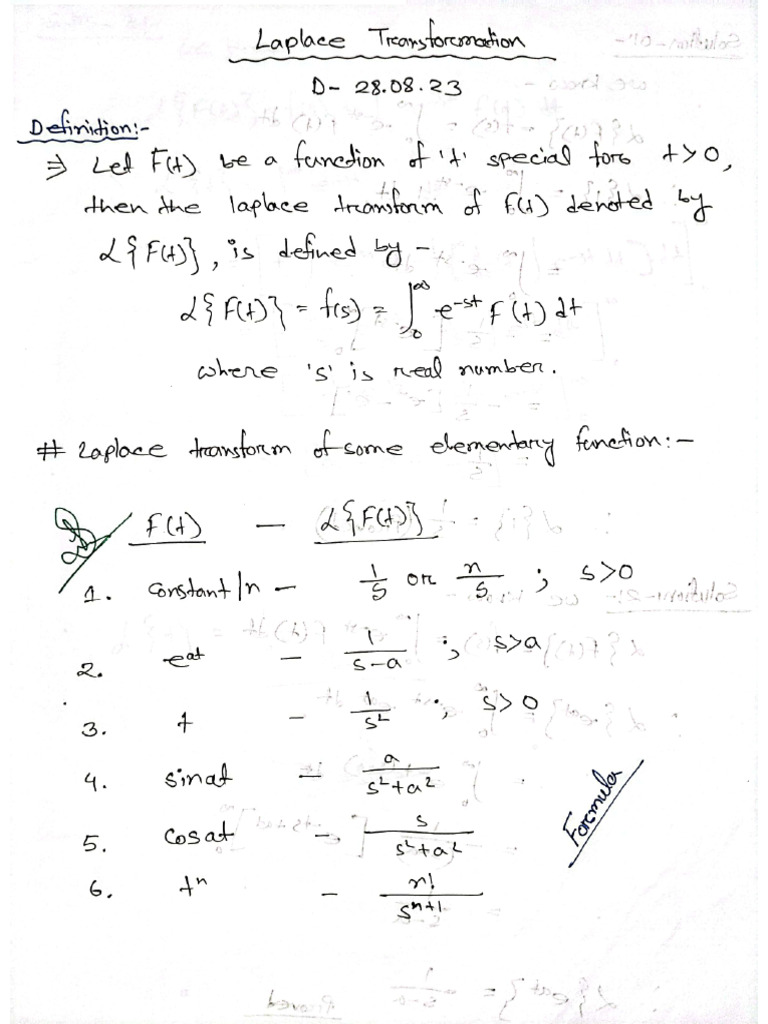 Laplace Transformation
D- 28.08.23
Definition:-
⇒ Let F(t) be a function of 't' special for t>0,
then the laplace transform of F(t) denoted by
ℒ{F(t)}, is defined by -
ℒ{F(t)} = f(s) = ∫₀^∞ e^-st F(t) dt
where 's' is real number.
# Laplace transform of some elementary function:-
F(t) — ℒ{F(t)}
1. constant/n — 1/s or n/s ; s>0
2. e^at — 1/(s-a) ; s>a
3. t — 1/s² ; s>0
4. sinat — a/(s²+a²)
5. cosat — s/(s²+a²)
6. t^n — n!/s^(n+1)
Formula